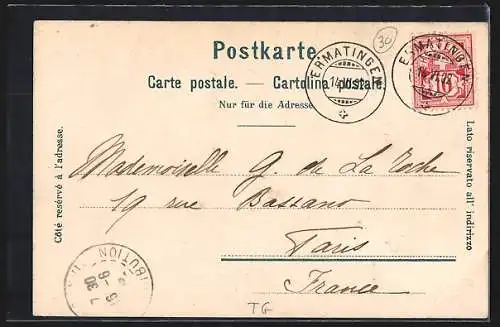 30
Postkarte
Carte postale. — Cartolina postale.
Nur für die Adresse
ERMATINGEN
ERMATINGEN
10
Côté reservé à l'adresse.
Lato riservato all' indirizzo
Mademoiselle G. de La Roche
19 rue Bassano
Paris
France
7 30
TG